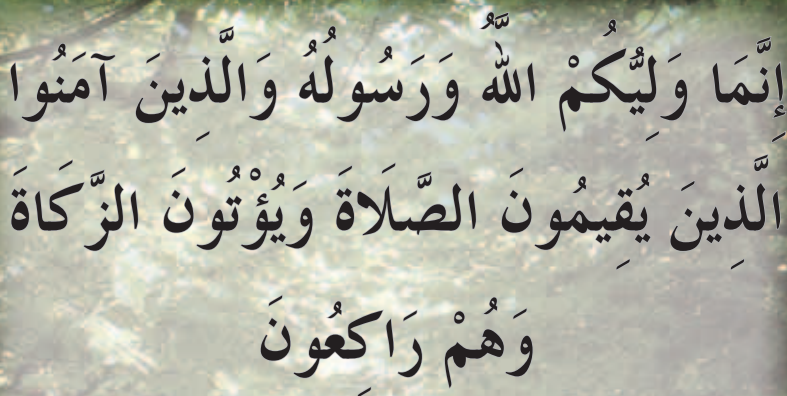 إِنَّمَا وَلِيُّكُمُ اللَّهُ وَرَسُولُهُ وَالَّذِينَ آمَنُوا
الَّذِينَ يُقِيمُونَ الصَّلَاةَ وَيُؤْتُونَ الزَّكَاةَ
وَهُمْ رَاكِعُونَ